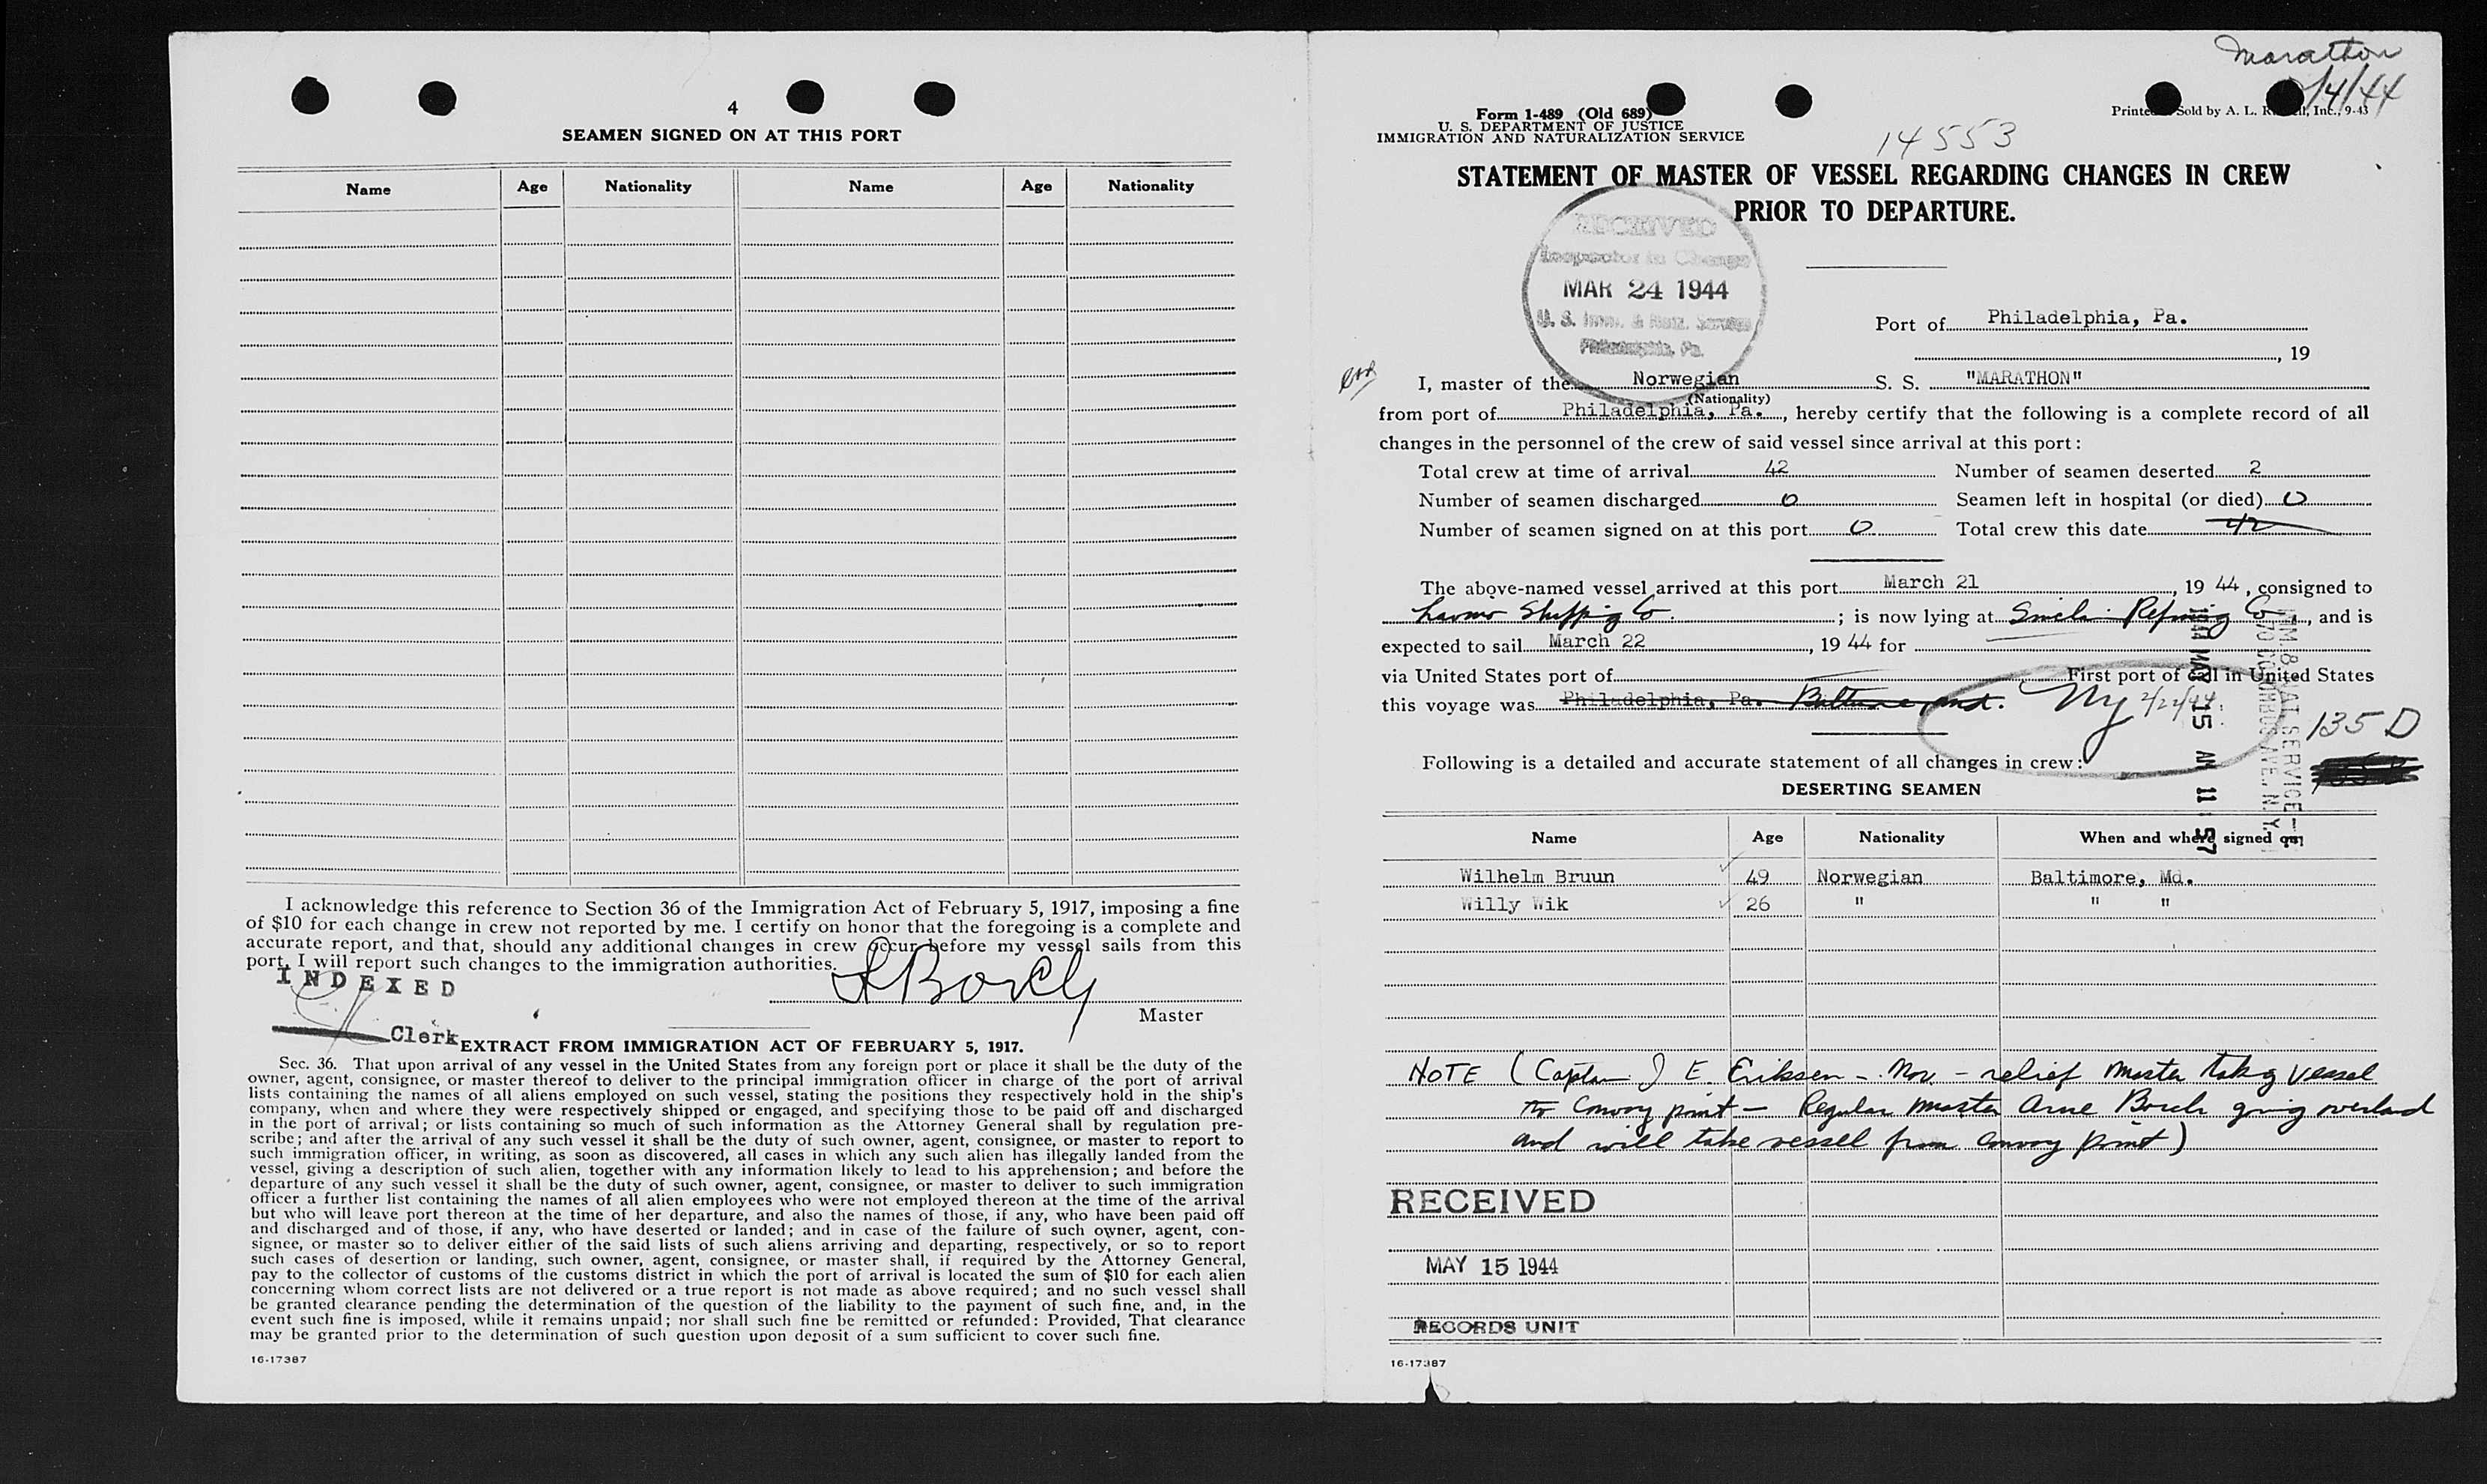 4
SEAMEN SIGNED ON AT THIS PORT
Name Age Nationality Name Age Nationality
I acknowledge this reference to Section 36 of the Immigration Act of February 5, 1917, imposing a fine
of $10 for each change in crew not reported by me. I certify on honor that the foregoing is a complete and
accurate report, and that, should any additional changes in crew occur before my vessel sails from this
port, I will report such changes to the immigration authorities.
INDEXED
Borch
Master
Clerk
EXTRACT FROM IMMIGRATION ACT OF FEBRUARY 5, 1917.
Sec. 36. That upon arrival of any vessel in the United States from any foreign port or place it shall be the duty of the
owner, agent, consignee, or master thereof to deliver to the principal immigration officer in charge of the port of arrival
lists containing the names of all aliens employed on such vessel, stating the positions they respectively hold in the ship's
company, when and where they were respectively shipped or engaged, and specifying those to be paid off and discharged
in the port of arrival; or lists containing so much of such information as the Attorney General shall by regulation pre-
scribe; and after the arrival of any such vessel it shall be the duty of such owner, agent, consignee, or master to report to
such immigration officer, in writing, as soon as discovered, all cases in which any such alien has illegally landed from the
vessel, giving a description of such alien, together with any information likely to lead to his apprehension; and before the
departure of any such vessel it shall be the duty of such owner, agent, consignee, or master to deliver to such immigration
officer a further list containing the names of all alien employees who were not employed thereon at the time of the arrival
but who will leave port thereon at the time of her departure, and also the names of those, if any, who have been paid off
and discharged and of those, if any, who have deserted or landed; and in case of the failure of such owner, agent, con-
signee, or master so to deliver either of the said lists of such aliens arriving and departing, respectively, or so to report
such cases of desertion or landing, such owner, agent, consignee, or master shall, if required by the Attorney General,
pay to the collector of customs of the customs district in which the port of arrival is located the sum of $10 for each alien
concerning whom correct lists are not delivered or a true report is not made as above required; and no such vessel shall
be granted clearance pending the determination of the question of the liability to the payment of such fine, and, in the
event such fine is imposed, while it remains unpaid; nor shall such fine be remitted or refunded: Provided, That clearance
may be granted prior to the determination of such question upon deposit of a sum sufficient to cover such fine.
16-17387
Marathon
/4/44
Form 1-489 (Old 689)
U. S. DEPARTMENT OF JUSTICE
IMMIGRATION AND NATURALIZATION SERVICE
Sold by A. L. Inc., 9-43
14553
STATEMENT OF MASTER OF VESSEL REGARDING CHANGES IN CREW
PRIOR TO DEPARTURE.
RECEIVED
Inspector in Charge
MAR 24 1944
U. S. Imm. & Natz. Service
Philadelphia, Pa.
Port of Philadelphia, Pa.
, 19
I, master of the Norwegian S. S. "MARATHON"
(Nationality)
from port of Philadelphia, Pa., hereby certify that the following is a complete record of all
changes in the personnel of the crew of said vessel since arrival at this port:
Total crew at time of arrival 42 Number of seamen deserted 2
Number of seamen discharged 0 Seamen left in hospital (or died) 0
Number of seamen signed on at this port 0 Total crew this date 42
The above-named vessel arrived at this port March 21, 19 44, consigned to
Shipping Co. ; is now lying at Refining Co, and is
expected to sail March 22, 19 44 for
via United States port of First port of call in United States
this voyage was Philadelphia, Pa. Baltimore Md. Ny
135 D
Following is a detailed and accurate statement of all changes in crew:
IMM. & NAT. SERVICE
70 COLUMBUS AVE., N.Y.
1944 MAY 15 AM 11 57
DESERTING SEAMEN
Name Age Nationality When and where signed on
Wilhelm Bruun 49 Norwegian Baltimore, Md.
Willy Wik 26 " " "
NOTE (Captain J E. Eriksen - Nor. - relief master taking vessel
to convoy point - Regular master Arne Borch going overland
and will take vessel from convoy point)
RECEIVED
MAY 15 1944
RECORDS UNIT
16-17387